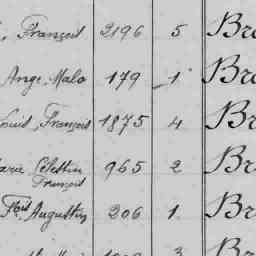 François 2196 5 Br
Ange Malo 179 1 Br
Louis François 1875 4 Br
Marie Célestin 965 2 Br
François
Fçois Augustin 206 1 Br
3 Br